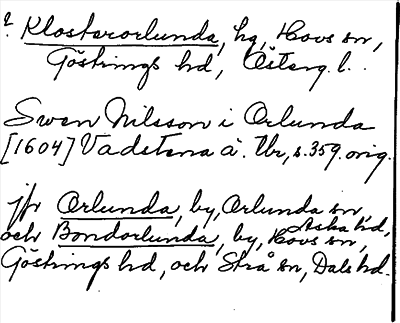 ? Klosterorlunda, hg, Hovs sn,
Göstrings hd, Österg. l.
Swen Nilsson i Orlunda
[1604] Vadstena ä. Ur, s. 359. orig.
jfr Orlunda, by, Orlunda sn,
Aska hd,
och Bondorlunda, by, Hovs sn,
Göstrings hd, och Strå sn, Dals hd.